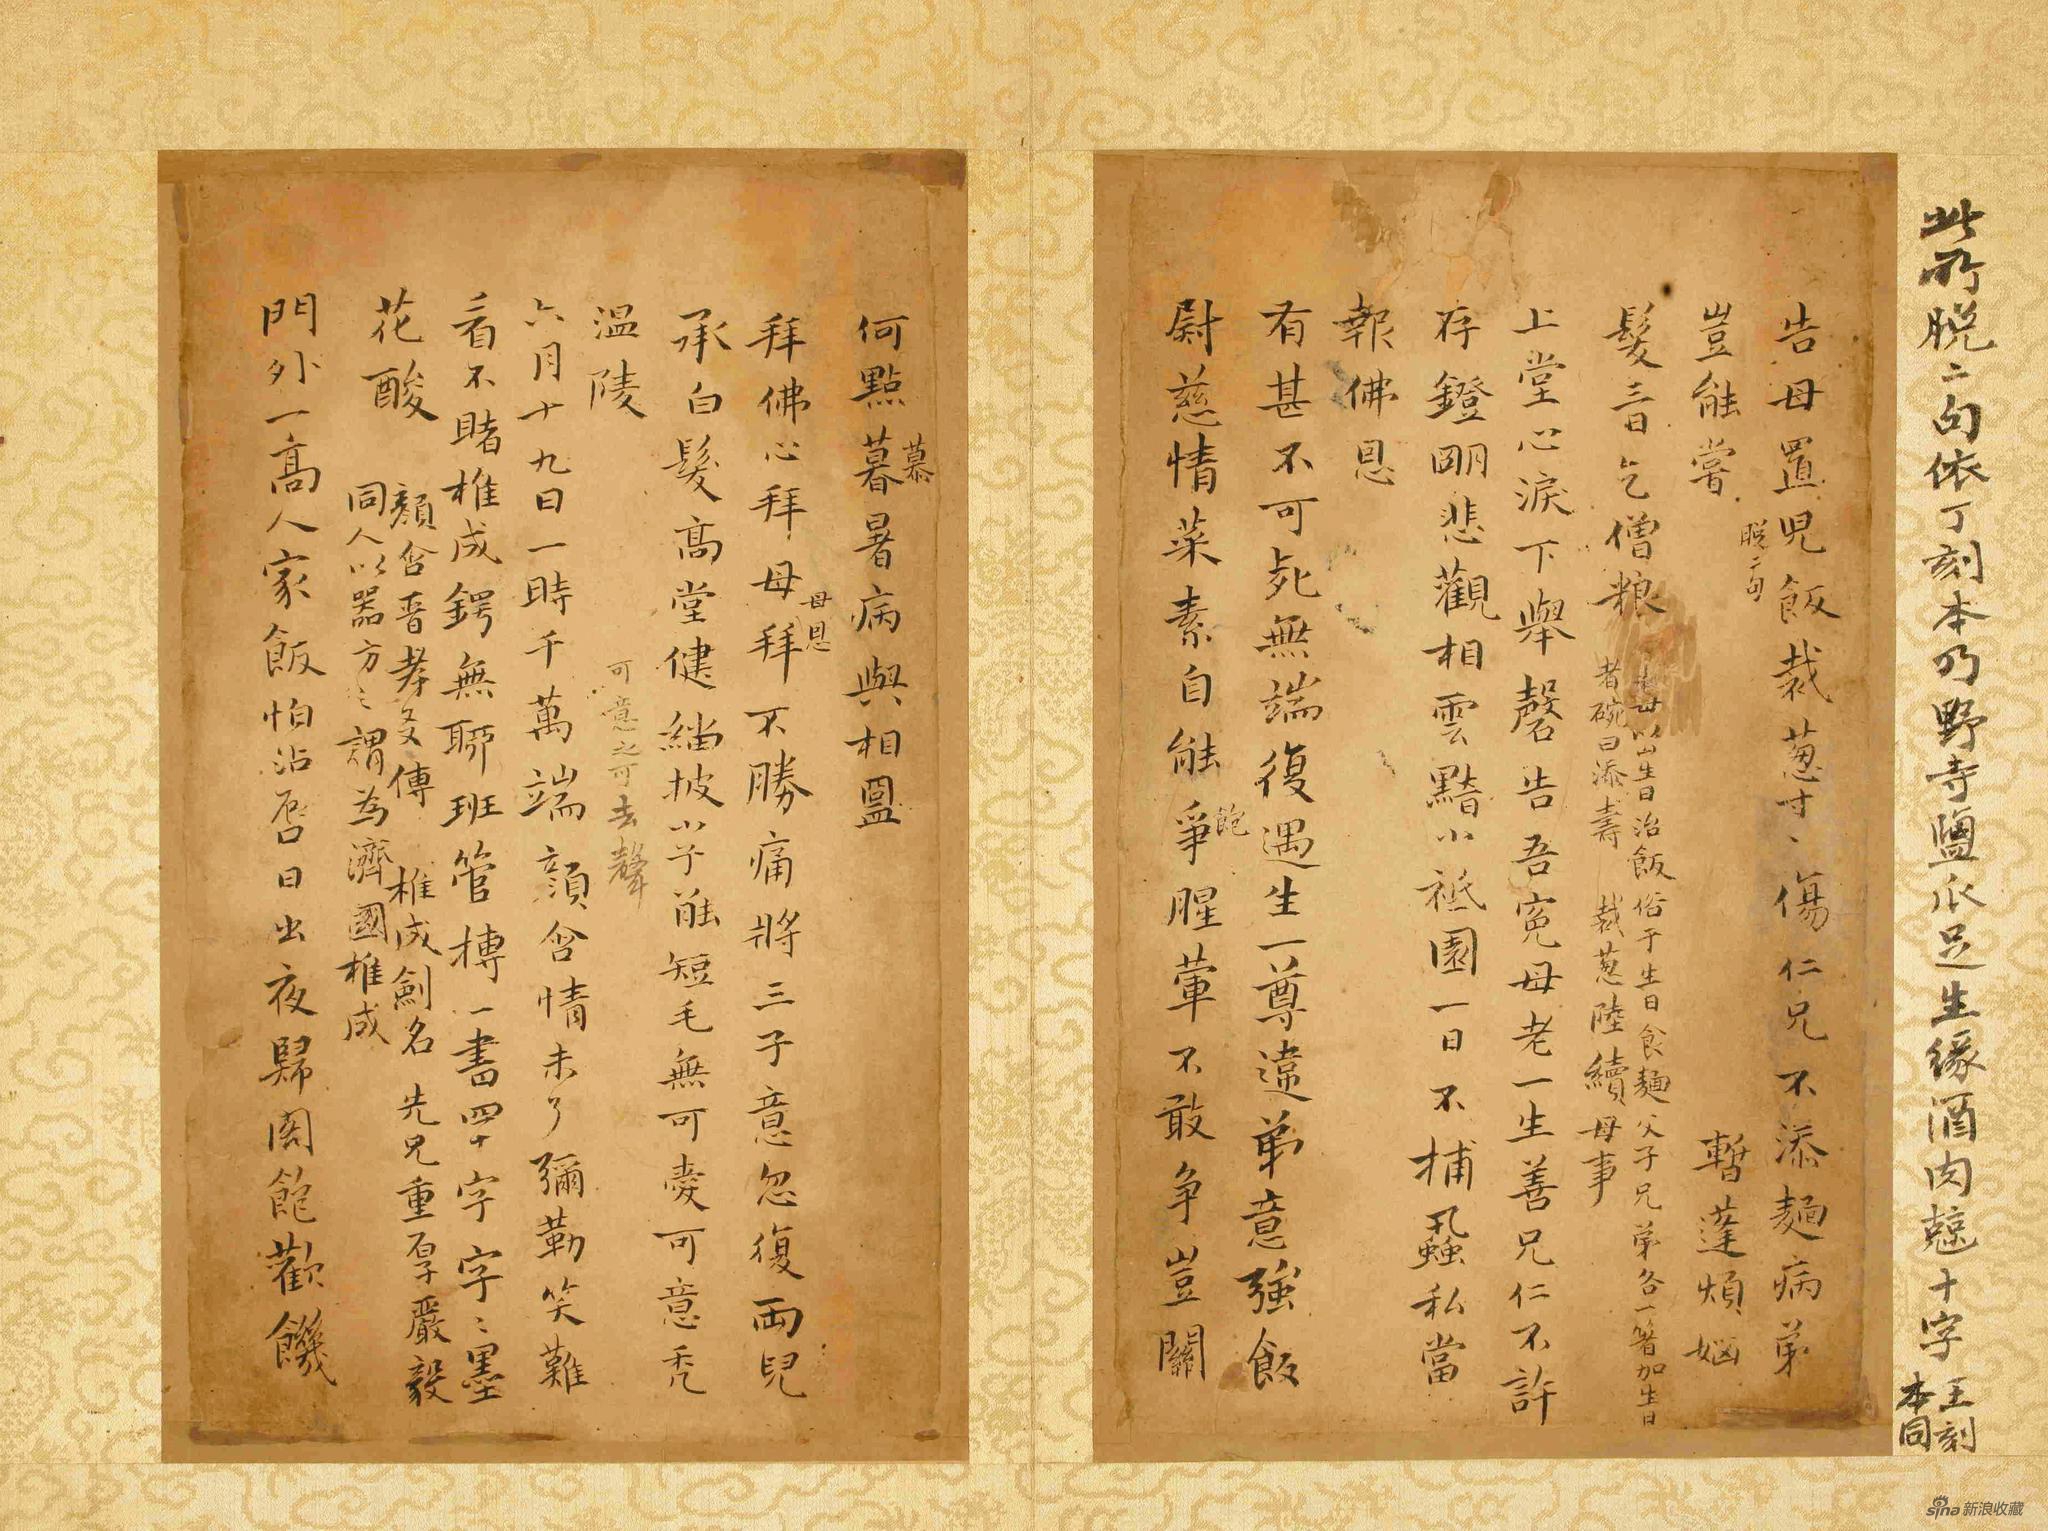 此所脫二句依丁刻本乃野寺鹽瓜足生緣酒肉兢十字
王刻本同
告母置兒飯裁葱寸〻傷仁兄不添麵病弟
豈能嘗
脫二句
暫蓬煩妪
髮三日乞僧粮
母以生日治飯俗于生日食麵父子兄弟各一箸加生日
者碗曰添壽 裁葱陸續母事
上堂心淚下舉磬告吾寃母老一生善兄仁不許
存鐙朙悲觀相雲黯小祗園一日不捕蝨私當
報佛恩
有甚不可死無端復遇生一尊違弟意強飯
尉慈情菜素自能爭腥葷不敢争豈關
飽
何點暮暑病與相圗
慕
拜佛心拜母拜不勝痛將三子意忽復兩兒
母恩
承白髮高堂健緇披小子能短毛無可愛可意禿
溫陵
可意之可去聲
六月十九日一時千萬端顔含情未了彌勒笑難
看不賭椎成鍔無聊班管摶一書四十字字〻墨
花酸
顔含晉孝友傳 椎成劍名 先兄重厚嚴毅
同人以器方之謂為濟國椎成
門外一高人家飯怕沾唇日出夜歸閤飽歡饑
sina 新浪收藏